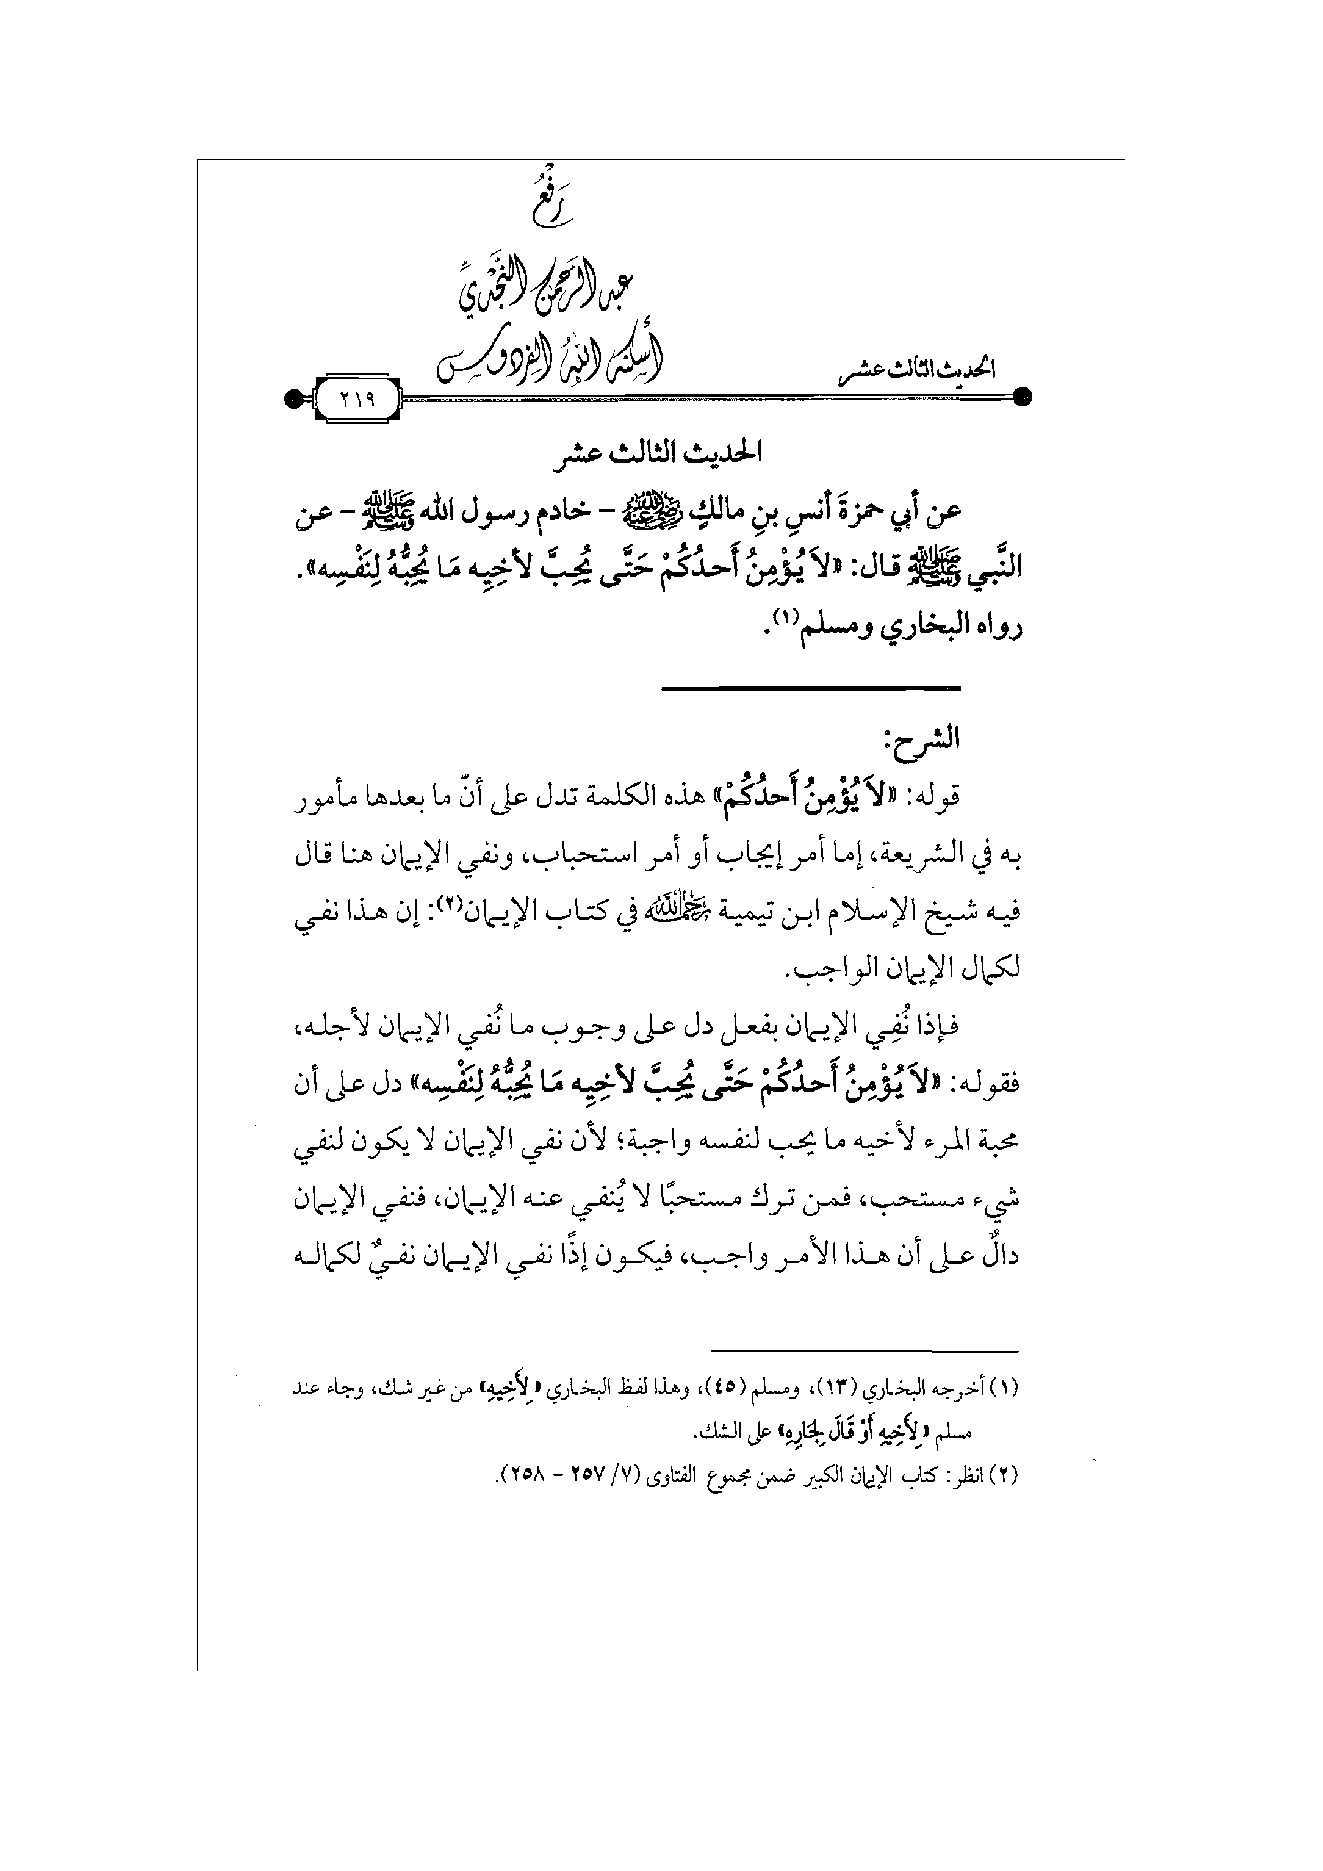 رَفْعُ
عبد الرحمن النجدي
أسكنه الله الفردوس
الحديث الثالث عشر
٢١٩
الحديث الثالث عشر
عن أبي حمزةَ أنسِ بنِ مالكٍ رضي الله عنه – خادم رسول الله ﷺ – عن
النَّبي ﷺ قال: «لاَ يُؤْمِنُ أَحدُكُمْ حَتَّى يُحِبَّ لأخِيِه مَا يُحِبُّهُ لِنَفْسِه».
رواه البخاري ومسلم(١).
الشرح:
قوله: «لاَ يُؤْمِنُ أَحدُكُمْ» هذه الكلمة تدل على أنّ ما بعدها مأمور
به في الشريعة، إما أمر إيجاب أو أمر استحباب، ونفي الإيمان هنا قال
فيه شيخ الإسلام ابن تيمية رحمه الله في كتاب الإيمان(٢): إن هذا نفي
لكمال الإيمان الواجب.
فإذا نُفِي الإيمان بفعل دل على وجوب ما نُفي الإيمان لأجله،
فقوله: «لاَ يُؤْمِنُ أَحدُكُمْ حَتَّى يُحِبَّ لأخِيِه مَا يُحِبُّهُ لِنَفْسِه» دل على أن
محبة المرء لأخيه ما يحب لنفسه واجبة؛ لأن نفي الإيمان لا يكون لنفي
شيء مستحب، فمن ترك مستحبًا لا يُنفي عنه الإيمان، فنفي الإيمان
دالٌ على أن هذا الأمر واجب، فيكون إذًا نفي الإيمان نفيٌ لكماله
(١) أخرجه البخاري (١٣)، ومسلم (٤٥)، وهذا لفظ البخاري «لِأَخِيهِ» من غير شك، وجاء عند
مسلم «لِأَخِيهِ أَوْ قَالَ لِجَارِهِ» على الشك.
(٢) انظر: كتاب الإيمان الكبير ضمن مجموع الفتاوى (٧/ ٢٥٧ – ٢٥٨).